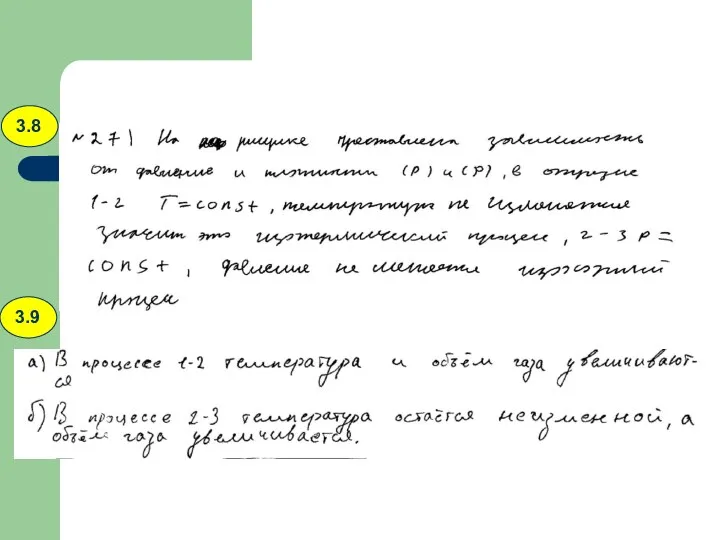 3.8
№ 27) На рисунке преставлена зависимость
от давление и плотности (p) и (ρ), в отрезке
1-2 T = const, температура не изменяется
значит это изотермический процесс, 2-3 p =
const, давление не меняется изрожный
процесс
3.9
а) В процессе 1-2 температура и объём газа увеличивают-
ся
б) В процессе 2-3 температура остаётся неизменной, а
объём газа увеличивается.